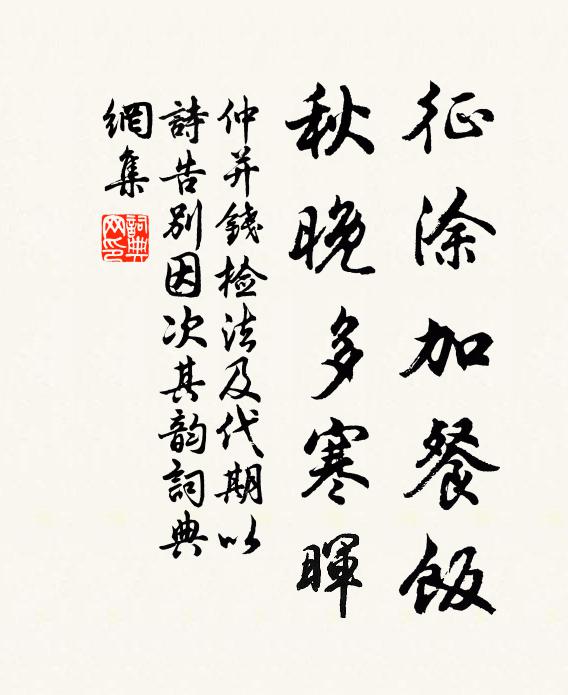 征涂加餐飯
秋晚多寒暉
仲并錢檢法及代期以
詩告別因次其韵詞典
網集
詞典網印